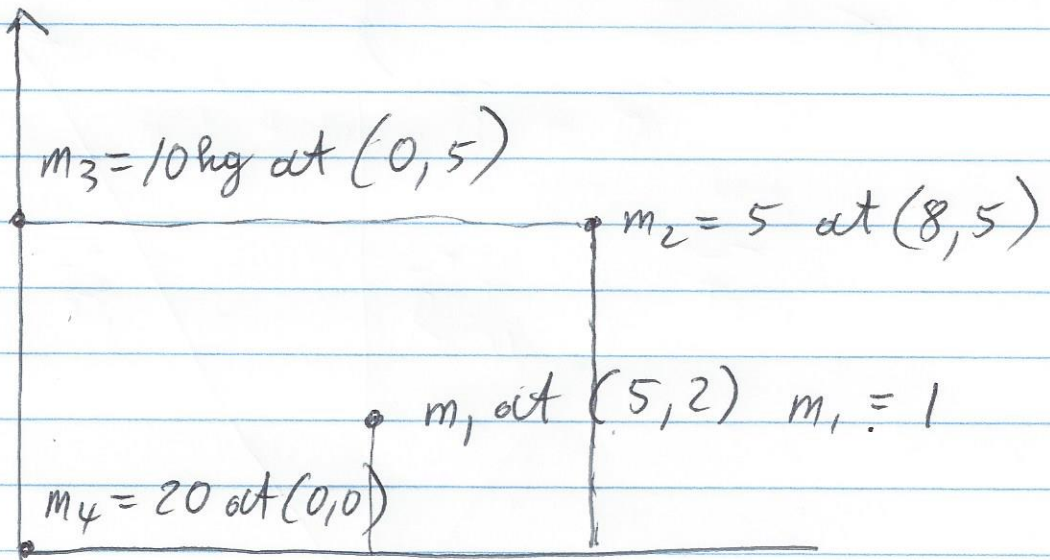 m₃ = 10kg at (0,5)
m₂ = 5 at (8,5)
m₁ at (5,2) m₁ = 1
m₄ = 20 at (0,0)